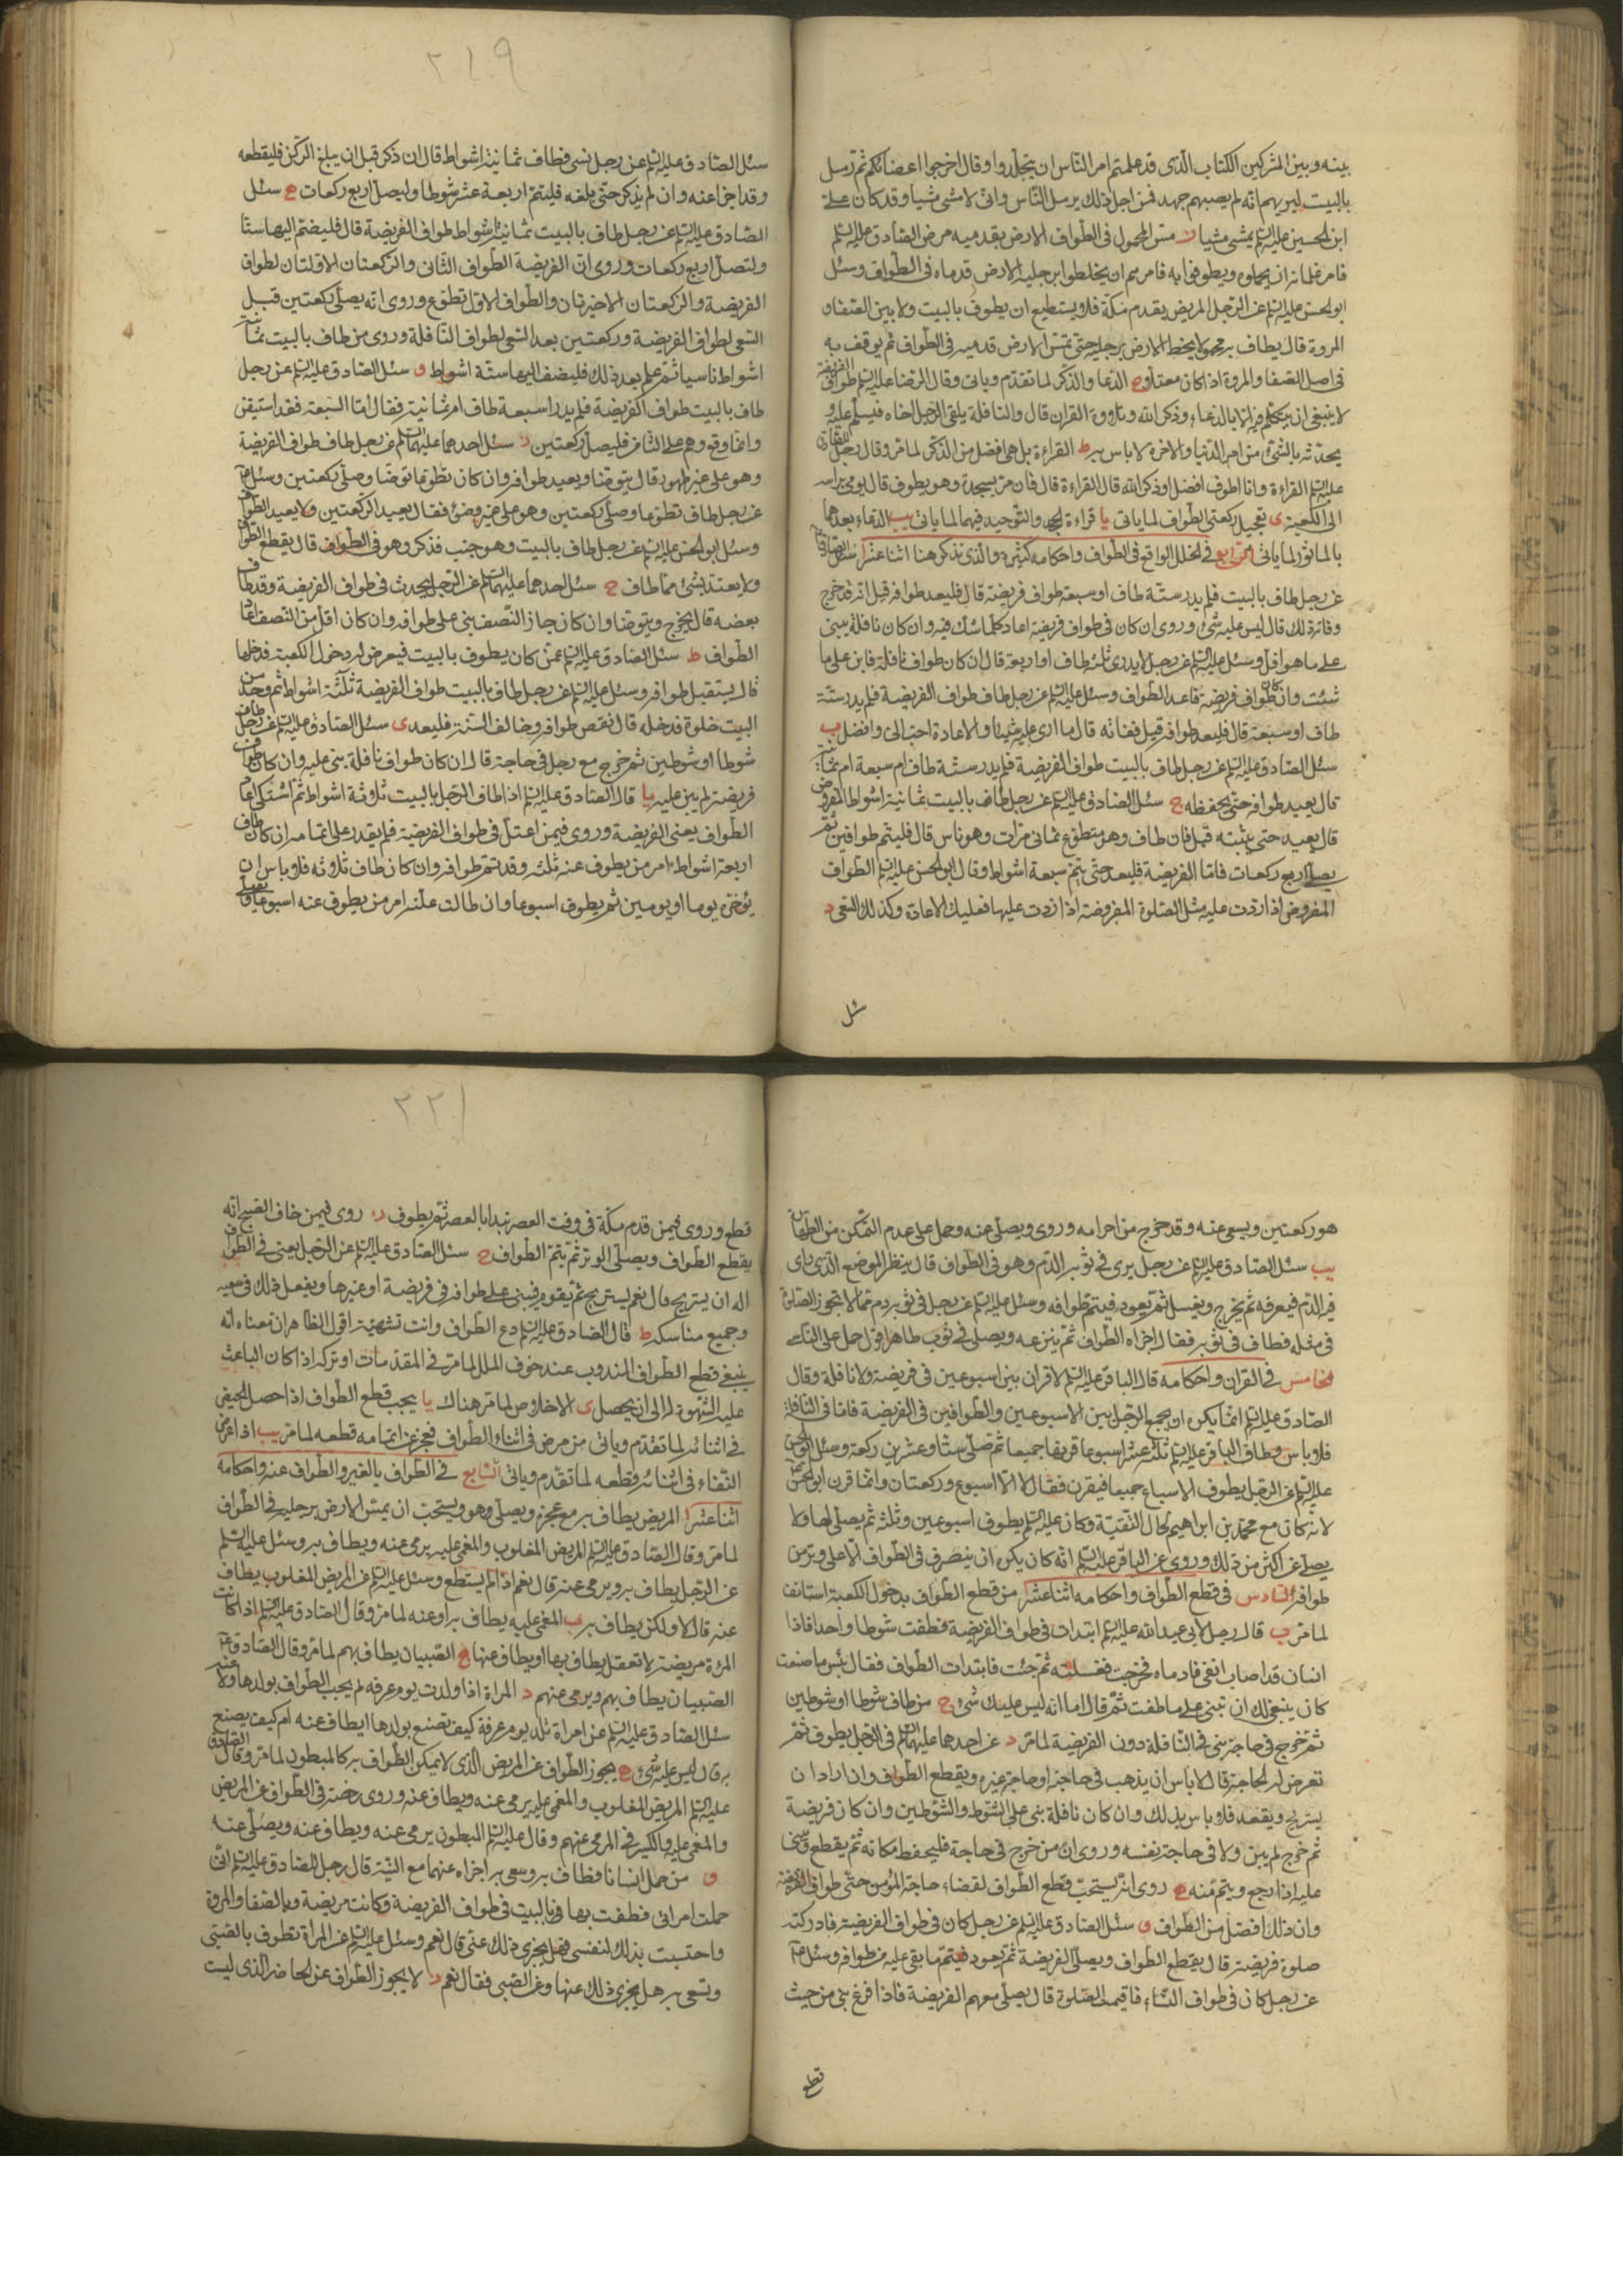 بينه وبين المشركين الكتاب الذى قد علمتم امر الناس ان يتجلدوا وقال اخرجوا اعضائكم ثم رمل
بالبيت ليريهم انه لم يصبهم جهد فمن اجل ذلك يرمل الناس وانى لامشى مشيا وقد كان على
ابن الحسين عليه السلم يمشى مشيا ز مس المحمول فى الطواف الارض بقدميه مرض الصادق عليه السلم
فامر غلمانه ان يحملوه ويطوفوا به فامرهم ان يخطوا برجليه الارض قدماه فى الطواف وسئل
ابو الحسن عليه السلم عن الرجل المريض يقدم مكة فلا يستطيع ان يطوف بالبيت ولا بين الصفا و
المروة قال يطاف به محمولا يخط الارض برجليه حتى تمس الارض قدميه فى الطواف ثم يوقف به
فى اصل الصفا والمروة اذا كان معتلا ح الدعا والذكر لما تقدم وياتى وقال الرضا عليه السلم طواف الفريضة
لا ينبغى ان يتكلم فيه الا بالدعاء وذكر الله وتلاوة القران قال والنافلة يلقى الرجل اخاه فيسلم عليه و
يحدثه بالشئ من امر الدنيا والاخرة لا باس به ط القراءة بل هى افضل من الذكر لما مر وقال رجل للصادق
عليه السلم القراءة وانا اطوف افضل او ذكر الله قال القراءة قال فان مر بسجدة وهو يطوف قال يومى براسه
الى الكعبة ى تعجيل ركعتى الطواف لما ياتى يا قراءة الجحد والتوحيد فيهما لما ياتى يب الدعاء بعدهما
بالماثور لما ياتى الرابع فى الخلل الواقع فى الطواف واحكامه كثيرة والذى نذكر هنا اثنا عشر ا سئل الصادق
عن رجل طاف بالبيت فلم يدر ستة طاف او سبعة طواف فريضة قال فليعد طوافه قيل انه قد خرج
وفاته ذلك قال ليس عليه شئ وروى ان كان فى طواف فريضة اعاد كلما شك فيه وان كان نافلة يبنى
على ما هو اقل وسئل عليه السلم عن رجل لا يدرى ثلثة طاف او اربعة قال ان كان طواف نافلة فابن على ما
شئت وان كان طواف فريضة فاعد الطواف وسئل عليه السلم عن رجل طاف طواف الفريضة فلم يدر ستة
طاف او سبعة قال فليعد طوافه قيل ففاته قال ما ارى عليه شيئا والاعادة احب الى وافضل ب
سئل الصادق عليه السلم عن رجل طاف بالبيت طواف الفريضة فلم يدر ستة طاف ام سبعة ام ثمانية
قال يعيد طوافه حتى يحفظه ج سئل الصادق عليه السلم عن رجل طاف بالبيت ثمانية اشواط المفروض
قال يعيد حتى يثبته قيل فان طاف وهو متطوع ثمانى مرات وهو ناس قال فليتم طوافين ثم
يصلى اربع ركعات فاما الفريضة فليعد حتى يتم سبعة اشواط وقال ابو الحسن عليه السلم الطواف
المفروض اذا زدت عليه مثل الصلوة المفروضة اذا زدت عليها فعليك الاعادة وكذلك السعى د
سئل
٢١٩
سئل الصادق عليه السلم عن رجل نسى فطاف ثمانية اشواط قال ان ذكر قبل ان يبلغ الركن فليقطعه
وقد اجزا عنه وان لم يذكر حتى بلغه فليتم اربعة عشر شوطا وليصل اربع ركعات ه سئل
الصادق عليه السلم عن رجل طاف بالبيت ثمانية اشواط طواف الفريضة قال فليضم اليها ستا
ولتصل اربع ركعات وروى ان الفريضة الطواف الثانى والركعتان الاولتان لطواف
الفريضة والركعتان الاخيرتان والطواف الاول تطوع وروى انه يصلى ركعتين قبل
السعى لطواف الفريضة وركعتين بعد السعى لطواف النافلة وروى من طاف بالبيت ثمانية
اشواط ناسيا ثم علم بعد ذلك فليضف اليها ستة اشواط و سئل الصادق عليه السلم عن رجل
طاف بالبيت طواف الفريضة فلم يدر اسبعة طاف ام ثمانية فقال اما السبعة فقد استيقن
وانما وقع وهمه على الثامن فليصل ركعتين ز سئل احدهما عليهما السلم عن رجل طاف طواف الفريضة
وهو على غير طهور قال يتوضا ويعيد طوافه وان كان تطوعا توضا وصلى ركعتين وسئل ع
عن رجل طاف تطوعا وصلى ركعتين وهو على غير وضوء فقال يعيد الركعتين ولا يعيد الطواف
وسئل ابو الحسن عليه السلم عن رجل طاف بالبيت وهو جنب فذكر وهو فى الطواف قال يقطع الطواف
ولا يعتد بشئ مما طاف ح سئل احدهما عليهما السلم عن الرجل يحدث فى طواف الفريضة وقد طاف
بعضه قال يخرج ويتوضا وان كان جاز النصف بنى على طوافه وان كان اقل من النصف اعاد
الطواف ط سئل الصادق عليه السلم عمن كان يطوف بالبيت فيعرض له دخول الكعبة فدخلها
قال يستقبل طوافه وسئل عليه السلم عن رجل طاف بالبيت طواف الفريضة ثلثة اشواط ثم وجد من
البيت خلوة فدخله قال نقض طوافه وخالف السنة فليعد ى سئل الصادق عليه السلم عن رجل طاف
شوطا او شوطين ثم خرج مع رجل فى حاجة قال ان كان طواف نافلة بنى عليه وان كان طواف
فريضة لم يبن عليه يا قال الصادق عليه السلم اذا طاف الرجل بالبيت ثلاثة اشواط ثم اشتكى اعاد
الطواف يعنى الفريضة وروى فيمن اعتل فى طواف الفريضة فلم يقدر على اتمامه ان كان طاف
اربعة اشواط امر من يطوف عنه ثلثة وقد تم طوافه وان كان طاف ثلاثة فلا باس ان
يؤخره يوما او يومين ثم يطوف اسبوعا وان طالت علته امر من يطوف عنه اسبوعا ويصلى
هو ركعتين ويسعى عنه وقد خرج من احرامه وروى ويصلى عنه وحمل على عدم التمكن من الطهارة
يب سئل الصادق عليه السلم عن رجل يرى فى ثوبه الدم وهو فى الطواف قال ينظر الموضع الذى راى
فيه الدم فيعرفه ثم يخرج ويغسله ثم يعود فيتم طوافه وسئل عليه السلم عن رجل فى ثوبه دم مما لا تجوز الصلوة
فى مثله فطاف فى ثوبه فقال اجزاه الطواف ثم ينزعه ويصلى فى ثوب طاهر اقول حمل على
الخامس فى القران واحكامه قال الباقر عليه السلم لا قران بين اسبوعين فى فريضة ولا نافلة وقال
الصادق عليه السلم انما يكره ان يجمع الرجل بين الاسبوعين والطوافين فى الفريضة فاما فى النافلة
فلا باس وطاف الباقر عليه السلم ثلثة عشر اسبوعا قرنها جميعا ثم صلى ستا وعشرين ركعة وسئل ابو الحسن
عليه السلم عن الرجل يطوف الاسباع جميعا فيقرن فقال لا الا اسبوع وركعتان وانما قرن ابو الحسن ع
لانه كان مع محمد بن ابراهيم لحال التقية وكان عليه السلم يطوف اسبوعين وثلثة ثم يصلى لها ولا
يصلى عن اكثر من ذلك وروى عن الباقر عليه السلم انه كان يكره ان ينصرف فى الطواف الا على وتر من
طوافه السادس فى قطع الطواف واحكامه اثنا عشر ا من قطع الطواف بدخول الكعبة استانف
لما مر ب قال رجل لابى عبد الله عليه السلم ابتدات فى طواف الفريضة فطفت شوطا واحدا فاذا
انسان قد اصاب انفى فادماه فخرجت فغسلته ثم جئت فابتدات الطواف فقال بئس ما صنعت
كان ينبغى لك ان تبنى على ما طفت ثم قال اما انه ليس عليك شئ ج من طاف شوطا او شوطين
ثم خرج فى حاجة بنى فى النافلة دون الفريضة لما مر د عن احدهما عليهما السلم فى الرجل يطوف ثم
تعرض له الحاجة قال لا باس ان يذهب فى حاجته او حاجة غيره ويقطع الطواف وان اراد ان
يستريح ويقعد فلا باس بذلك وان كان نافلة بنى على الشوط والشوطين وان كان فريضة
ثم خرج لم يبن ولا فى حاجة نفسه وروى ان من خرج فى حاجة فليحفظ مكانه ثم يقطع ويبنى
عليه اذا رجع ويتم منه ه روى انه يستحب قطع الطواف لقضاء حاجة المؤمن حتى طواف الفريضة
وان ذلك افضل من الطواف و سئل الصادق عليه السلم عن رجل كان فى طواف الفريضة فادركته
صلوة فريضة قال يقطع الطواف ويصلى الفريضة ثم يعود فيتم ما بقى عليه من طوافه وسئل ع
عن رجل كان فى طواف النساء فاقيمت الصلوة قال يصلى معهم الفريضة فاذا فرغ بنى من حيث
قطع
٢٢١
قطع وروى فيمن قدم مكة فى وقت العصر تبدا بالعصر ثم يطوف ز روى فيمن خاف الصبح انه
يقطع الطواف ويصلى الوتر ثم يتم الطواف ح سئل الصادق عليه السلم عن الرجل يعيى فى الطواف
اله ان يستريح قال نعم يستريح ثم يقوم فيبنى على طوافه فى فريضة او غيرها ويفعل ذلك فى سعيه
وجميع مناسكه ط قال الصادق عليه السلم دع الطواف وانت تشتهيه اقول الظاهر ان معناه انه
ينبغى قطع الطواف المندوب عند خوف الملل لما مر فى المقدمات او تركه اذا كان الباعث
عليه الشهوة الى ان يحصل الاخلاص لما مر هناك يا يجب قطع الطواف اذا حصل الحيض
فى اثنائه لما تقدم وياتى من مرض فى اثناء الطواف فعجز عن اتمامه قطعه لما مر يب اذا
فى اثنائه وقطعه لما تقدم وياتى السابع فى الطواف بالغير والطواف عنه واحكامه
اثنا عشر ا المريض يطاف به مع عجزه ويصلى هو ويستحب ان يمس الارض برجليه فى الطواف
لما مر وقال الصادق عليه السلم المريض المغلوب والمغمى عليه يرمى عنه ويطاف به وسئل عليه السلم
عن الرجل يطاف به ويرمى عنه قال نعم اذا لم يستطع وسئل عليه السلم عن المريض المغلوب يطاف
عنه قال لا ولكن يطاف به ب المغمى عليه يطاف به او عنه لما مر وقال الصادق عليه السلم اذا كانت
المرأة مريضة لا تعقل يطاف بها او يطاف عنها ج الصبيان يطاف بهم لما مر وقال الصادق ع
الصبيان يطاف بهم ويرمى عنهم د المراة اذا ولدت يوم عرفة لم يجب الطواف بولدها ولا عنه
سئل الصادق عليه السلم عن امراة تلد يوم عرفة كيف تصنع بولدها ايطاف عنه ام كيف يصنع
به قال ليس عليه شئ ه يجوز الطواف عن المريض الذى لا يمكن الطواف به كالمبطون لما مر وقال الصادق
عليه السلم المريض المغلوب والمغمى عليه يرمى عنه ويطاف عنه وروى رخصة فى الطواف عن المريض
والمغمى عليه والكسير فى الرمى عنهم وقال عليه السلم المبطون يرمى عنه ويطاف عنه ويصلى عنه
و من حمل انسانا فطاف به وسعى به اجزاه عنهما مع النية قال رجل للصادق عليه السلم انى
حملت امراتى فطفت بها بالبيت فى طواف الفريضة وكانت مريضة وبالصفا والمروة
واحتسبت بذلك لنفسى فهل يجزى ذلك عنى قال نعم وسئل عليه السلم عن المراة تطوف بالصبى
وتسعى به هل يجزى ذلك عنها وعن الصبى فقال نعم ز لا يجوز الطواف عن الحاضر الذى ليست